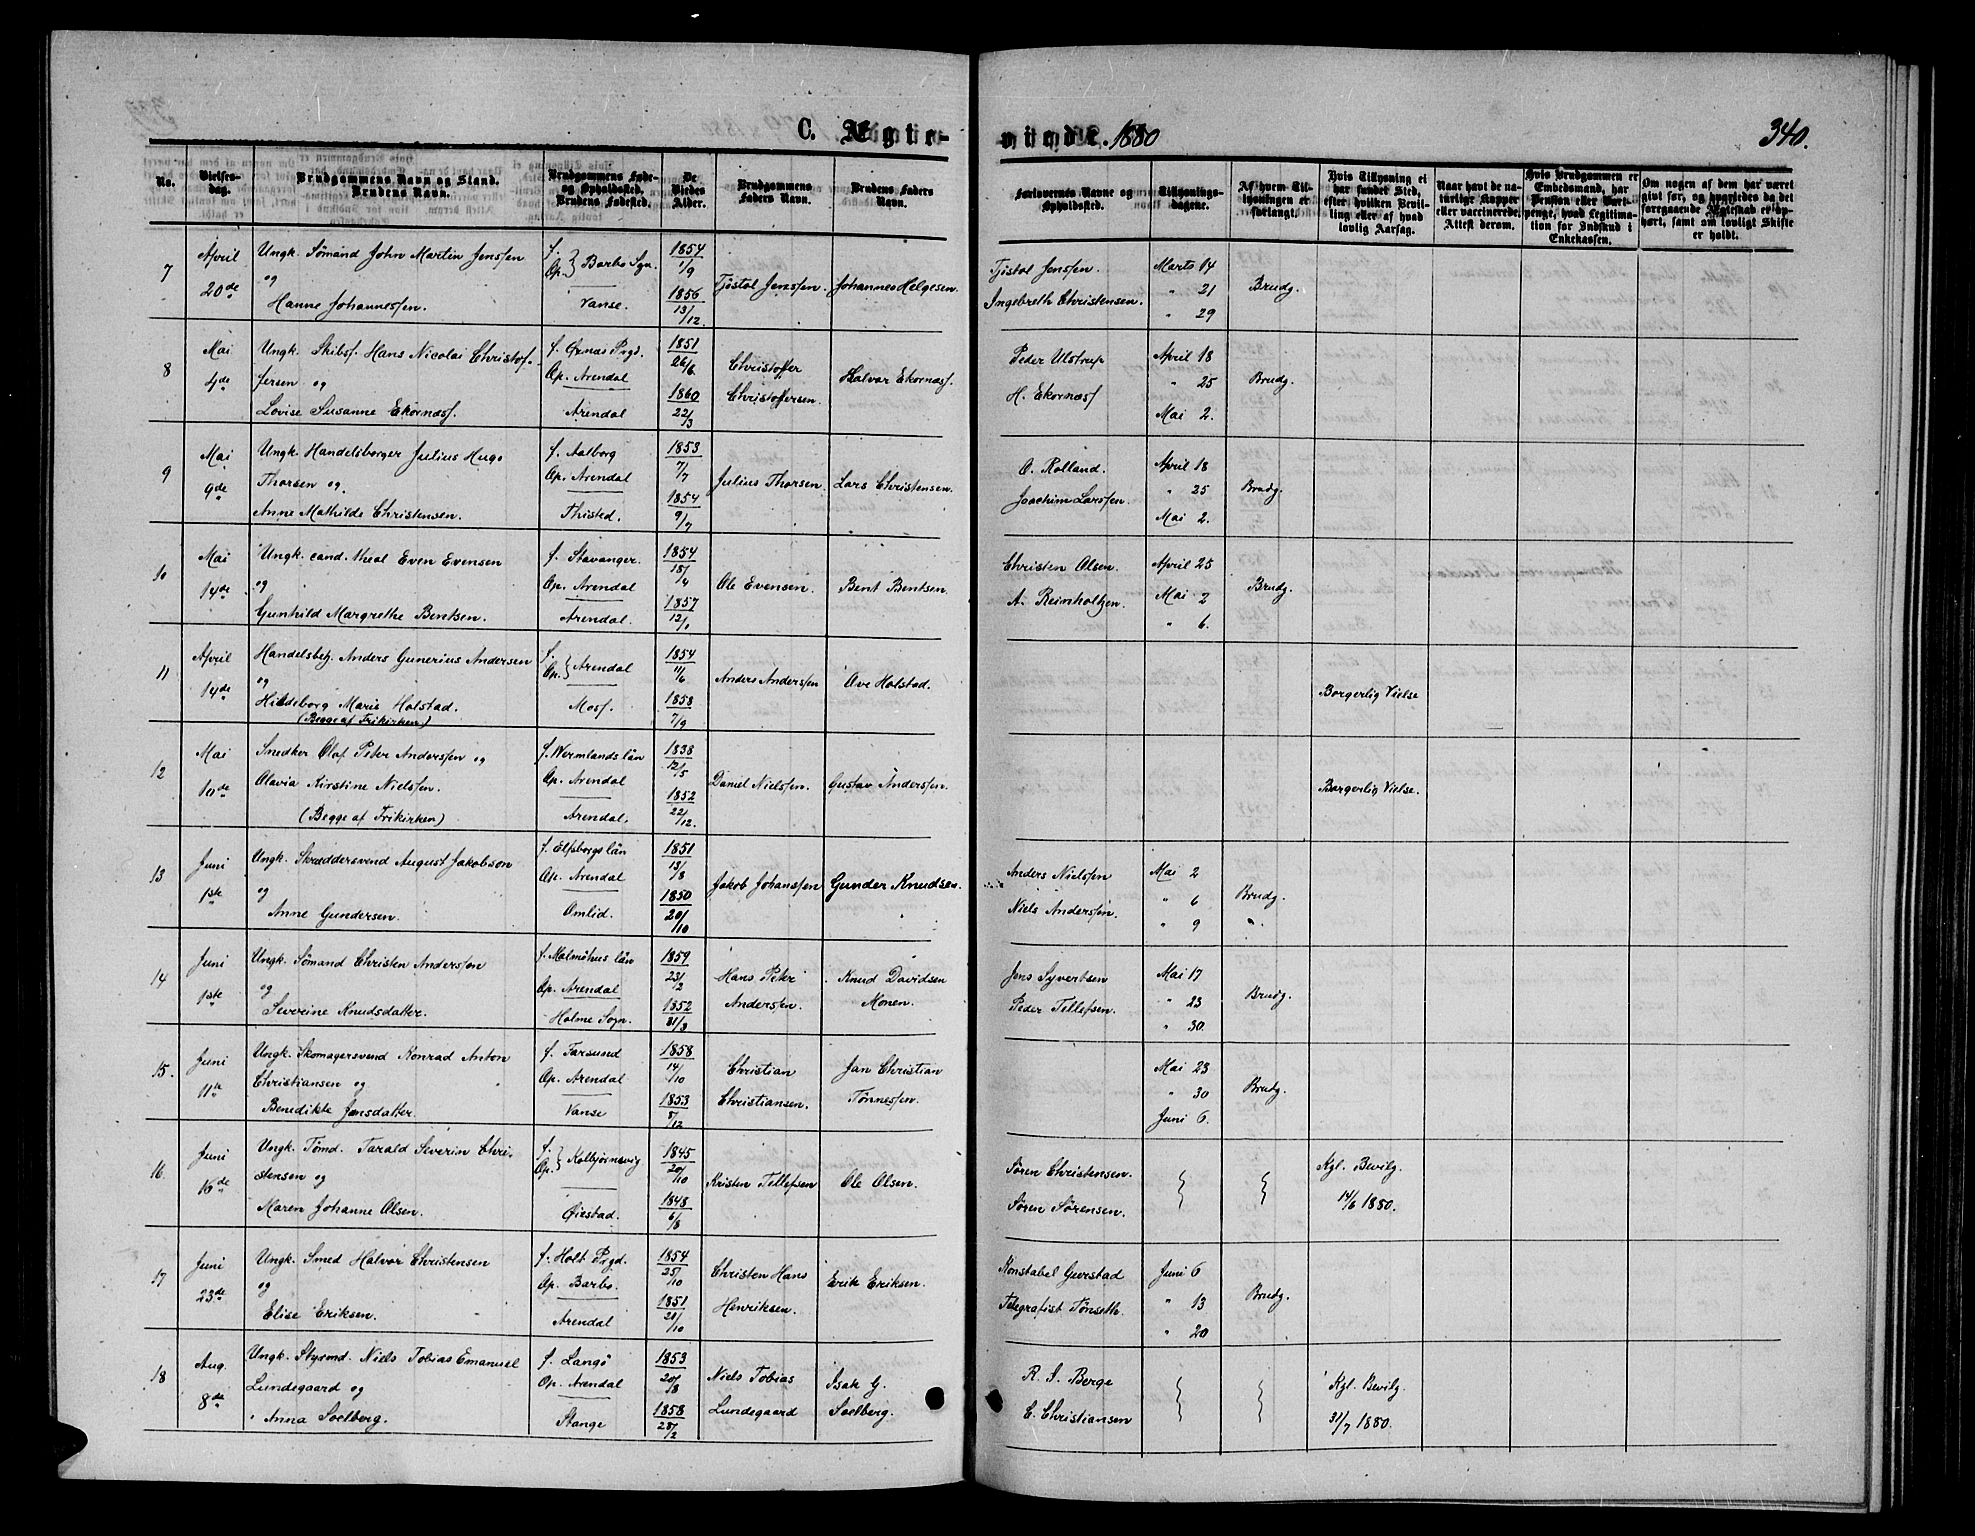 C. Ægte-
viede. 1880
340.
No.
Vielses-
dag.
Brudgommens Navn og Stand.
Brudens Navn.
Brudgommens Føde-
og Opholdssted.
Brudens Fødested.
De
Viedes
Alder.
Brudgommens
Faders Navn.
Brudens Faders
Navn.
Forlovernes Navne og
Opholdssted.
Tillysnings-
dagene.
Af hvem Til-
lysningen er
forlangt.
Hvis Tillysning ei
har fundet Sted,
efter hvilken Bevil-
ling eller af hvad
lovlig Aarsag.
Naar havt de na-
turlige Kopper
eller vaccinerede,
Attest derom.
Hvis Brudgommen er
Embedsmand, har
Pension eller Vart-
penge, hvad Legitima-
tion for Indskud i
Enkekassen.
Om nogen af dem har været
givt før, og hvorledes da det
foregaaende Ægteskab er op-
hørt, samt om lovligt Skifte
er holdt.
7
April
20de
Ungk. Sömand John Martin Jenssen
og
Hanne Johannessen.
f.
Op. } Barbo Sgn.
Vanse.
1854
1/9
1856
13/12.
Tjöstol Jenssen.
Johannes Helgesen.
Tjöstol Jenssen.
Ingebreth Christensen.
Marts 14
" 21
" 29
Brudg.
8
Mai
4de
Ungk. Skibsf. Hans Nicolai Christof-
fersen og
Lovise Susanne Ekornæss.
f. Oxnæs Prgd.
Op. Arendal
Arendal
1851
26/6
1860
22/3
Christoffer
Christoffersen.
Halvor Ekornæss.
Peder Ulstrup
H. Ekornæss
April 18
" 25
Mai 2.
Brudg.
9
Mai
9de
Ungk. Handelsborger Julius Hugo
Thorsen og
Anne Mathilde Christensen.
f. Aalborg
Op. Arendal
Thisted.
1853
7/7
1854
9/7
Julius Thorsen.
Lars Christensen.
O. Rolland.
Joachim Larssen.
April 18
" 25
Mai 2.
Brudg.
10
Mai
14de
Ungk. cand. theol Even Evensen
og
Gunhild Margrethe Bentsen.
f. Stavanger.
Op. Arendal
Arendal.
1854
18/4
1857
12/1
Ole Evensen.
Bent Bentsen.
Christen Olsen.
A. Reinholtzen.
April 25
Mai 2
" 6.
Brudg.
11
April
14de
Handelsbetj. Anders Gunerius Andersen
og
Hildeborg Marie Holstad.
(Begge af Frikirken)
f.
Op. } Arendal
Moss.
1854
11/6
1858
7/9
Anders Anderssen
Ove Holstad.
Borgerlig Vielse
12
Mai
10de
Snedker Olaf Peter Anderssen og
Olavia Kirstine Nielssen.
(Begge af Frikirken)
f. Wermlands län
Op. Arendal
Arendal.
1838
12/5
1852
22/12.
Daniel Nielssen.
Gustav Anderssen.
Borgerlig Vielse.
13
Juni
1ste
Ungk. Skræddersvend August Jakobson
og
Anne Gundersen.
f. Elfsborgs län
Op. Arendal
Omlid.
1851
13/8
1850
20/10
Jakob Johanssen
Gunder Knudsen.
Anders Nielssen
Niels Anderssen.
Mai 2
" 6
" 9
Brudg.
14
Juni
1ste
Ungk. Sömand Christen Anderssen
og
Severine Knudsdatter.
f. Malmöhus län
Op. Arendal
Holme Sogn.
1859
23/2
1852
31/3
Hans Peter
Anderssen.
Knud Davidsen
Monen.
Jens Syvertsen
Peder Tellefsen.
Mai 17
" 23
" 30.
Brudg.
15.
Juni
11te
Ungk. Skomagersvend Konrad Anton
Christiansen og
Benedikte Jensdatter.
f. Farsund
Op. Arendal
Vanse
1858
14/10
1853
8/12
Christian
Christiansen.
Jan Christian
Tönnessen.
Mai 23
" 30
Juni 6.
Brudg.
16.
Juni
16de
Ungk. Tömd. Tarald Severin Chri-
stensen og
Maren Johanne Olsen.
f.
Op. } Kolbjørnsvig
Øiestad.
1845
20/10
1848
6/8
Kristen Tellefsen
Ole Olsen.
Sören Christensen.
Sören Sörensen.
Kgl. Bevilg.
14/6 1880.
17
Juni
23de
Ungk. Smed Halvor Christensen
og
Elise Eriksen.
f. Holt Prgd.
Op. Barbo.
Arendal
1854
25/10
1851
21/10
Christen Hans
Henriksen.
Erik Eriksen.
Konstabel Gurstad
Telegrafist Tönseth.
Juni 6
" 13
" 20
Brudg.
18
Aug.
8de
Ungk. Styrmd. Niels Tobias Emanuel
Lundegaard og
Anna Soelberg.
f. Langö
Op. Arendal
Stange
1853
20/8
1858
28/2
Niels Tobias
Lundegaard
Isak G.
Soelberg.
R. I. Berge
C. Christiansen
Kgl. Bevilg.
31/7 1880.